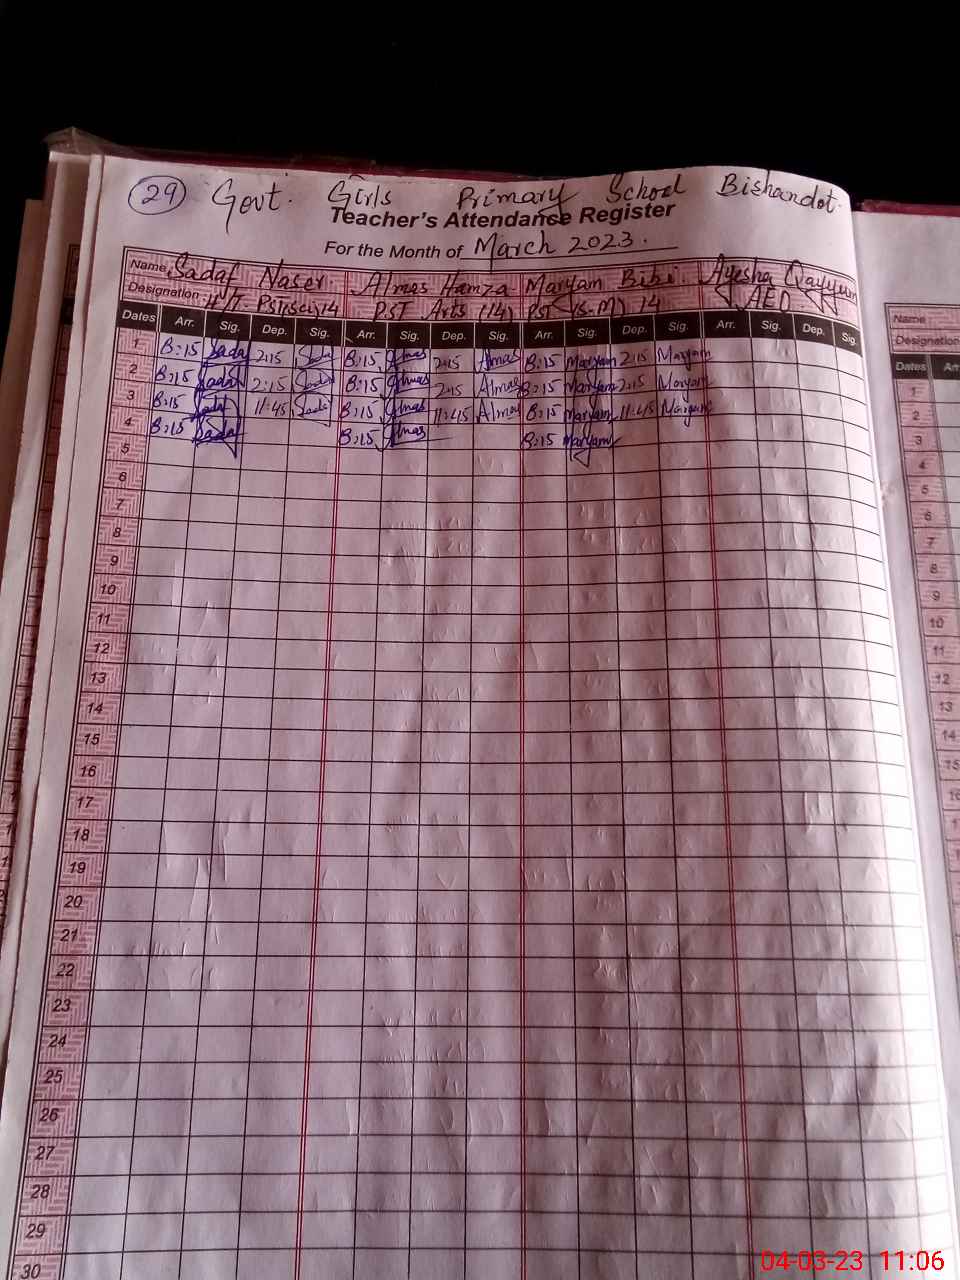 29 Govt. Girls Primary School Bishandot.
Teacher's Attendance Register
For the Month of March 2023.
Name Sadaf Naser Almas Hamza Maryam Bibi. Ayesha Qayyum
Designation PST Arts (14) PST (S.M) 14 AEO
Dates Arr. Sig. Dep. Sig. Arr. Sig. Dep. Sig. Arr. Sig. Dep. Sig. Arr. Sig. Dep. Sig.
1 8:15 Sadaf 2:15 Sadaf 8:15 Almas 2:15 Almas 8:15 Maryam 2:15 Maryam
2 8:15 Sadaf 2:15 Sadaf 8:15 Almas 2:15 Almas 8:15 Maryam 2:15 Maryam
3 8:15 Sadaf 11:45 Sadaf 8:15 Almas 11:45 Almas 8:15 Maryam 11:45 Maryam
4 8:15 Sadaf 8:15 Almas 8:15 Maryam
5
6
7
8
9
10
11
12
13
14
15
16
17
18
19
20
21
22
23
24
25
26
27
28
29
30
Name
Designation
Dates
1
2
3
4
5
6
7
8
9
10
11
12
13
14
15
16
04-03-23 11:06